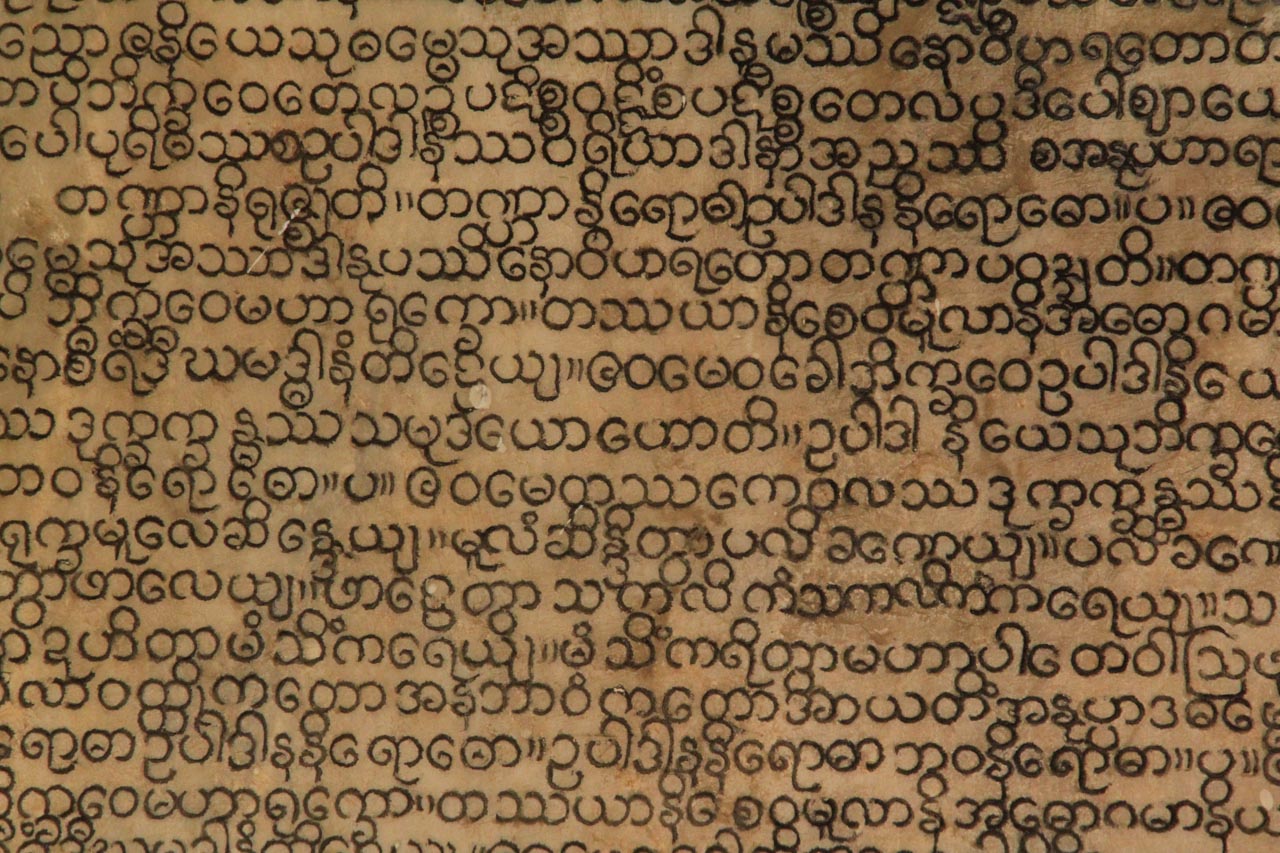 ညော ဇနိယေသု ဓမ္မေသု အဿာဒါနုပဿိနော ဝိဟရတော တ
ဘိက္ခဝေ တေလဉ္စ ပဋိစ္စ ဝဋ္ဋိံစ ပဋိစ္စ တေလပ္ပဒိပေါ ဈာယေ
ပေါ ပုရိမဿ စ ဥပါဒါနဿ ပရိယာဒါနာ အညဿ စ အနုပဟာရာ
တဏှာနိရုဇ္ဈတိ။ တဏှာ နိရောဓါ ဥပါဒါနနိရောဓော။ပ။ ဧဝ
မ္မေသု အဿာဒါနုပဿိနော ဝိဟရတော တဏှာ ပဝဍ္ဎတိ။ တဏှ
ပိ ဘိက္ခဝေ မဟာရုက္ခော။ တဿ ယာနိ စေဝ မူလာနိ အဓောဂမာ
နော စိရံ ဒိဃမဒ္ဓါနံ တိဋ္ဌေယျ။ ဧဝမေဝ ခေါ ဘိက္ခဝေ ဥပါဒါနိယေ
ဿ ဒုက္ခက္ခန္ဓဿ သမုဒယော ဟောတိ။ ဥပါဒါနိယေသု ဘိက္ခဝေ
ဘဝနိရောဓော။ပ။ ဧဝမေတဿ ကေဝလဿ ဒုက္ခက္ခန္ဓဿ နိ
ရုက္ခမူလေ ဆိန္ဒေယျ။ မူလံ ဆိန္ဒိတွာ ပလိခဏေယျ။ ပလိခဏေ
တွာ ဖာလေယျ။ ဖာဠေတွာ သကလိကံ သကလိကံ ကရေယျ။ သ
ဒဟိတွာ မံသိံ ကရေယျ။ မံသိံ ကရိတွာ မဟာဝါတေ ဝါ ဩဖု
လာဝတ္ထုကတော အနဘာဝံ ကတော အာယတိံ အနုပ္ပာဒဓမ္မေ
ရောဓာ ဥပါဒါနနိရောဓော။ ဥပါဒါနနိရောဓာ ဘဝနိရောဓာ။ပ။
က္ခဝေ မဟာရုက္ခော။ တဿ ယာနိ စေဝ မူလာနိ အဓောဂမာနိ ယ